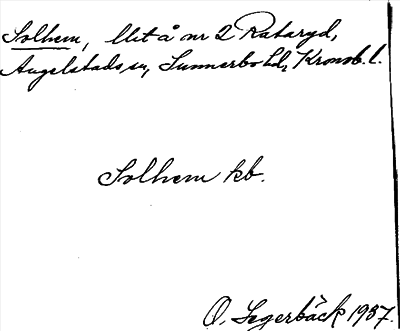 Solhem, llit å nr 2 Rataryd,
Angelstads sn, Sunnerbo hd, Kronob. l.
Solhem kb.
O. Segerbäck 1937.